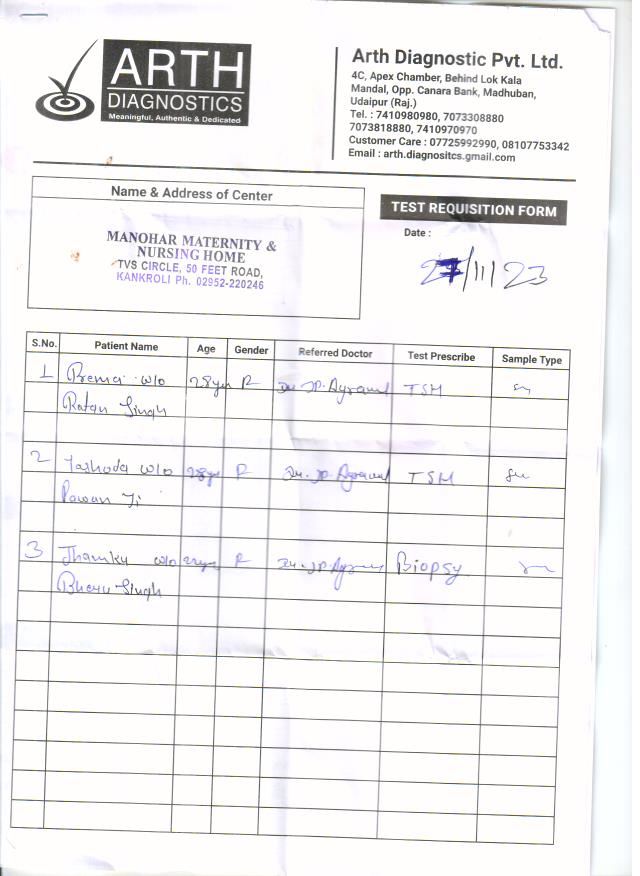 ARTH
DIAGNOSTICS
Meaningful, Authentic & Dedicated
Arth Diagnostic Pvt. Ltd.
4C, Apex Chamber, Behind Lok Kala
Mandal, Opp. Canara Bank, Madhuban,
Udaipur (Raj.)
Tel. : 7410980980, 7073308880
7073818880, 7410970970
Customer Care : 07725992990, 08107753342
Email : arth.diagnositcs.gmail.com
Name & Address of Center
MANOHAR MATERNITY &
NURSING HOME
TVS CIRCLE, 50 FEET ROAD,
KANKROLI Ph. 02952-220246
TEST REQUISITION FORM
Date :
27/11/23
S.No. Patient Name Age Gender Referred Doctor Test Prescribe Sample Type
1 Prema w/o 28yr Dr. JP. Agrawal TSM
Ratan Singh
2 Jashoda w/o 28yr Dr. JP. Agrawal TSM
Pawan Ji
3 Jhamku w/o Dr. JP. Biopsy
Bheru Singh